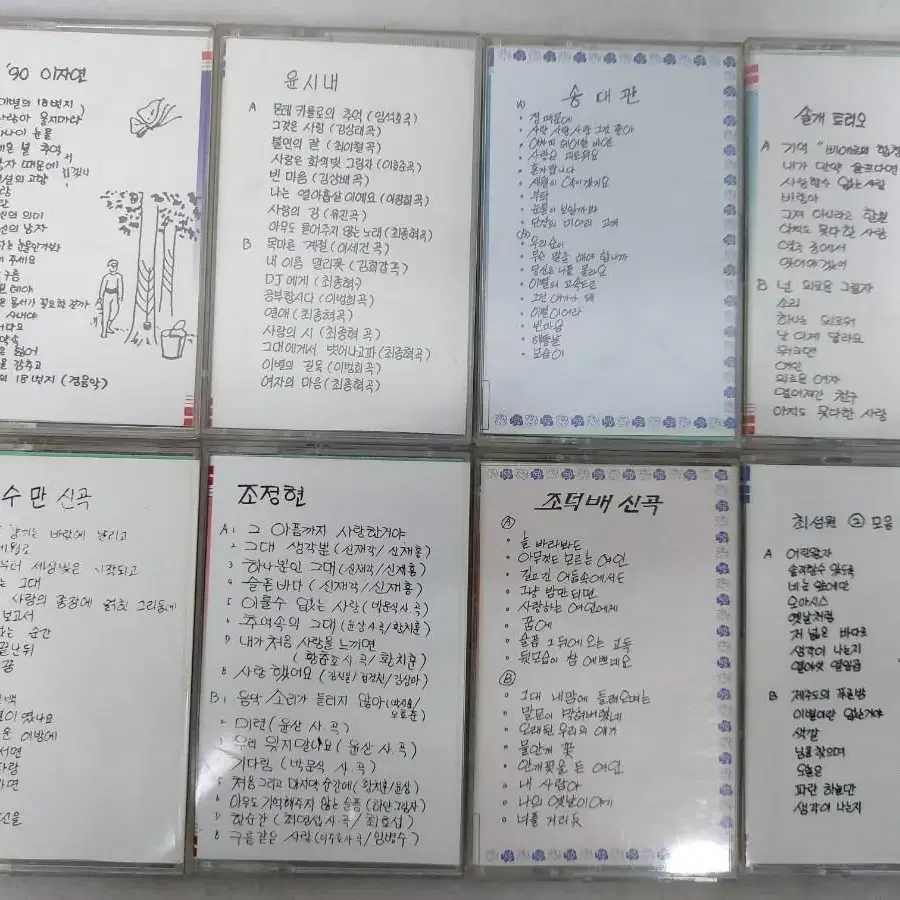 '90 이자연
이별의 18번지)
사랑아 울지마라
나이 눈물
남자 때문에
설의 고향
신의 의미
신의 남자
는 눈물인가봐
주세요
구름
잃어
을 감추고
의 18번지 (경음악)
윤시내
A 몬테카를로의 추억 (임석호곡)
그것은 사랑 (김상배곡)
불면의 밤 (최이철곡)
사랑은 회색빛 그림자 (이호준곡)
빈 마음 (김상배곡)
나는 열아홉살이에요 (이장희곡)
사랑의 강 (유진곡)
아무도 들어주지 않는 노래 (최종혁곡)
B 목마른 계절 (이세건곡)
내 이름 말리꽃 (김희갑곡)
DJ에게 (최종혁)
공부합시다 (이범희곡)
연애 (최종혁곡)
사랑의 시 (최종혁곡)
그대에게서 벗어나고파 (최종혁곡)
이별의 길목 (이범희곡)
여자의 마음 (최종혁곡)
송대관
A
정 때문에
사랑 사랑 사랑 그건 좋아
사랑은 괴로워요
혼자랍니다
세월이 약이겠지요
부탁
눈물이 보일까봐
단장의 미아리 고개
B
우리 순이
무슨 말을 해야 합니까
당신은 나를 몰라요
이별의 고속도로
그건 내가 할 때
이별이어라
빈마음
해뜰날
보슬이
솔개 트리오
A 기억 "비에로의 함정
내가 만약 슬프다면
사랑할수 없는 사람
바람아
그게 아니라고 한들
아직도 못다한 사랑
연극 중에서
잊어야겠어
B 넌 외로운 그림자
소리
하나는 외로워
날 이제 달라요
워크맨
여인
외로운 여자
멀어져간 친구
아직도 못다한 사랑
수만 신곡
바람에 날리고
세월로
부터 세상빛은 시작되고
는 그대
사랑의 종장에 얽힌 그리움에
보고서
는 순간
끝난뒤
꿈
백
이 있나요
운 이밤에
서면
자랑
가면
조정현
A 1 그 아픔까지 사랑한거야
2 그대 생각뿐 (신재각/신재홍)
3 하나뿐인 그대 (신재각/신재홍)
4 슬픈바다 (신재각/신재홍)
5 이룰수 없는 사랑 (박문식 사.곡)
6 추억속의 그대 (윤상 사곡/황치훈)
7 내가 처음 사랑을 느끼면
(황충호 사.곡/황치훈)
8 사랑 했어요
B 1 음악 소리가 들리지 않아
2 미련 (윤상 사.곡)
3 우리 잊지말아요 (윤상 사.곡)
기다림 (박문식 사.곡)
5 처음 그리고 마지막 순간에 (황치훈/윤상)
6 아무도 기억해주지 않는 슬픔 (하얀 그림자)
7 한순간 (최면섭 사.곡/최효섭)
8 구름같은 사랑 (이주호 사.곡/임병수)
조덕배 신곡
A
늘 바라봐도
아무것도 모르는 여인
길고긴 어둠속에서도
그냥 밤만되면
사랑하는 여인에게
꿈에
슬픔 그 뒤에 오는 고독
뒷모습이 참 예쁘네요
B
그대 내맘에 들어오며는
말문이 막혀버렸네
오래된 우리의 얘기
물안개 꽃
안개꽃을 든 여인
내 사랑아
나의 옛날이야기
너를 거리듯
최성원 ② 모음
A 어린왕자
솔직할수 있도록
오아시스
옛날처럼
저 넓은 바다로
생각이 나는지
열아섯 열일곱
B 제주도의 푸른밤
이별이란 없는거야
색깔
님을 찾으며
오늘은
파란 하늘만
생각이 나는지